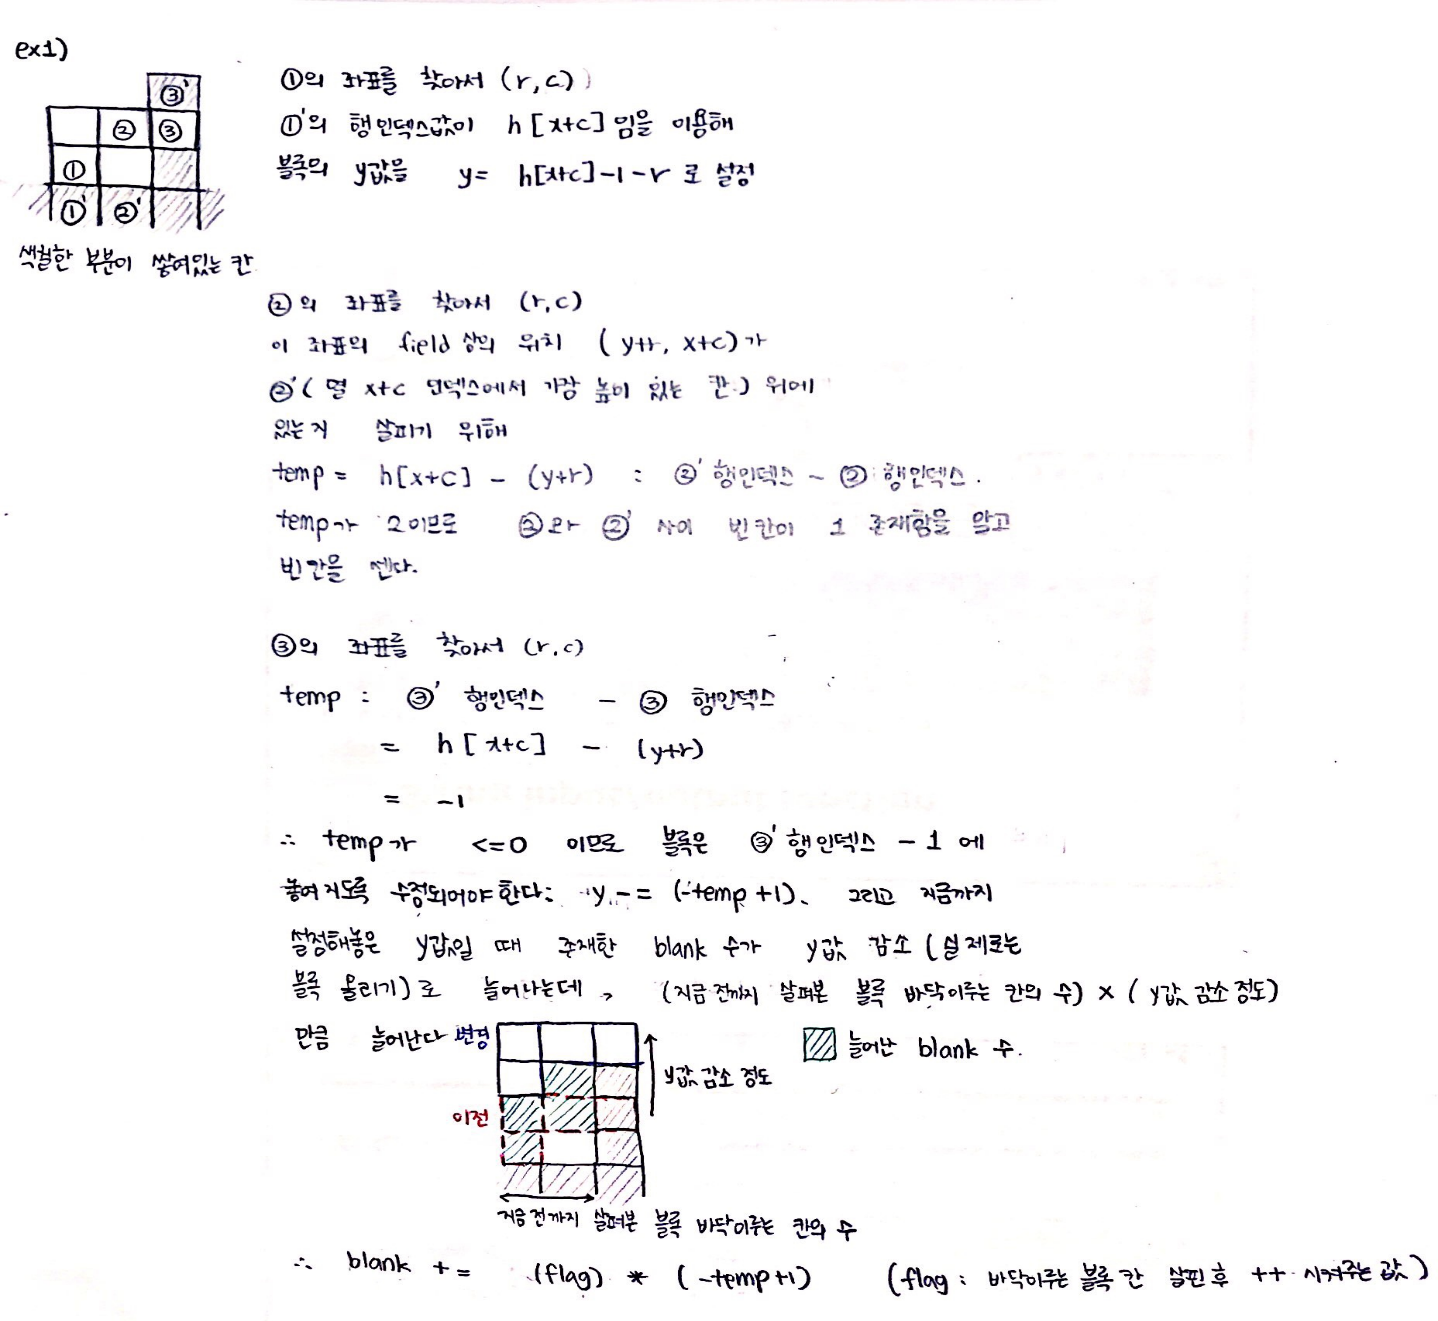 ex1)
③'
② ③
①
①' ②'
색칠한 부분이 쌓여있는 칸
①의 좌표를 찾아서 (r,c)
①'의 행인덱스값이 h[x+c] 임을 이용해
블록의 y값을 y= h[x+c]-1-r 로 설정
②의 좌표를 찾아서 (r,c)
이 좌표의 field 상의 위치 (y+r, x+c)가
②'( 열 x+c 인덱스에서 가장 높이 있는 칸) 위에
있는지 살피기 위해
temp = h[x+c] - (y+r) : ②' 행인덱스 - ② 행인덱스.
temp가 2이므로 ②와 ②' 사이 빈칸이 1 존재함을 알고
빈칸을 센다.
③의 좌표를 찾아서 (r,c)
temp : ③' 행인덱스 - ③ 행인덱스
= h[x+c] - (y+r)
= -1
∴ temp가 <=0 이므로 블록은 ③' 행인덱스 - 1 에
놓여지도록 수정되어야한다: y -= (-temp+1). 그리고 지금까지
설정해놓은 y값일 때 존재한 blank 수가 y값 감소 (실제로는
블록 올리기)로 늘어나는데, (지금 전까지 살펴본 블록 바닥이루는 칸의 수) × (y값 감소 정도)
만큼 늘어난다
변경
이전
y값 감소 정도
늘어난 blank 수.
지금 전까지 살펴본 블록 바닥이루는 칸의 수
∴ blank += (flag) * (-temp+1) (flag : 바닥이루는 블록 칸 살핀 후 ++ 시켜주는 값)